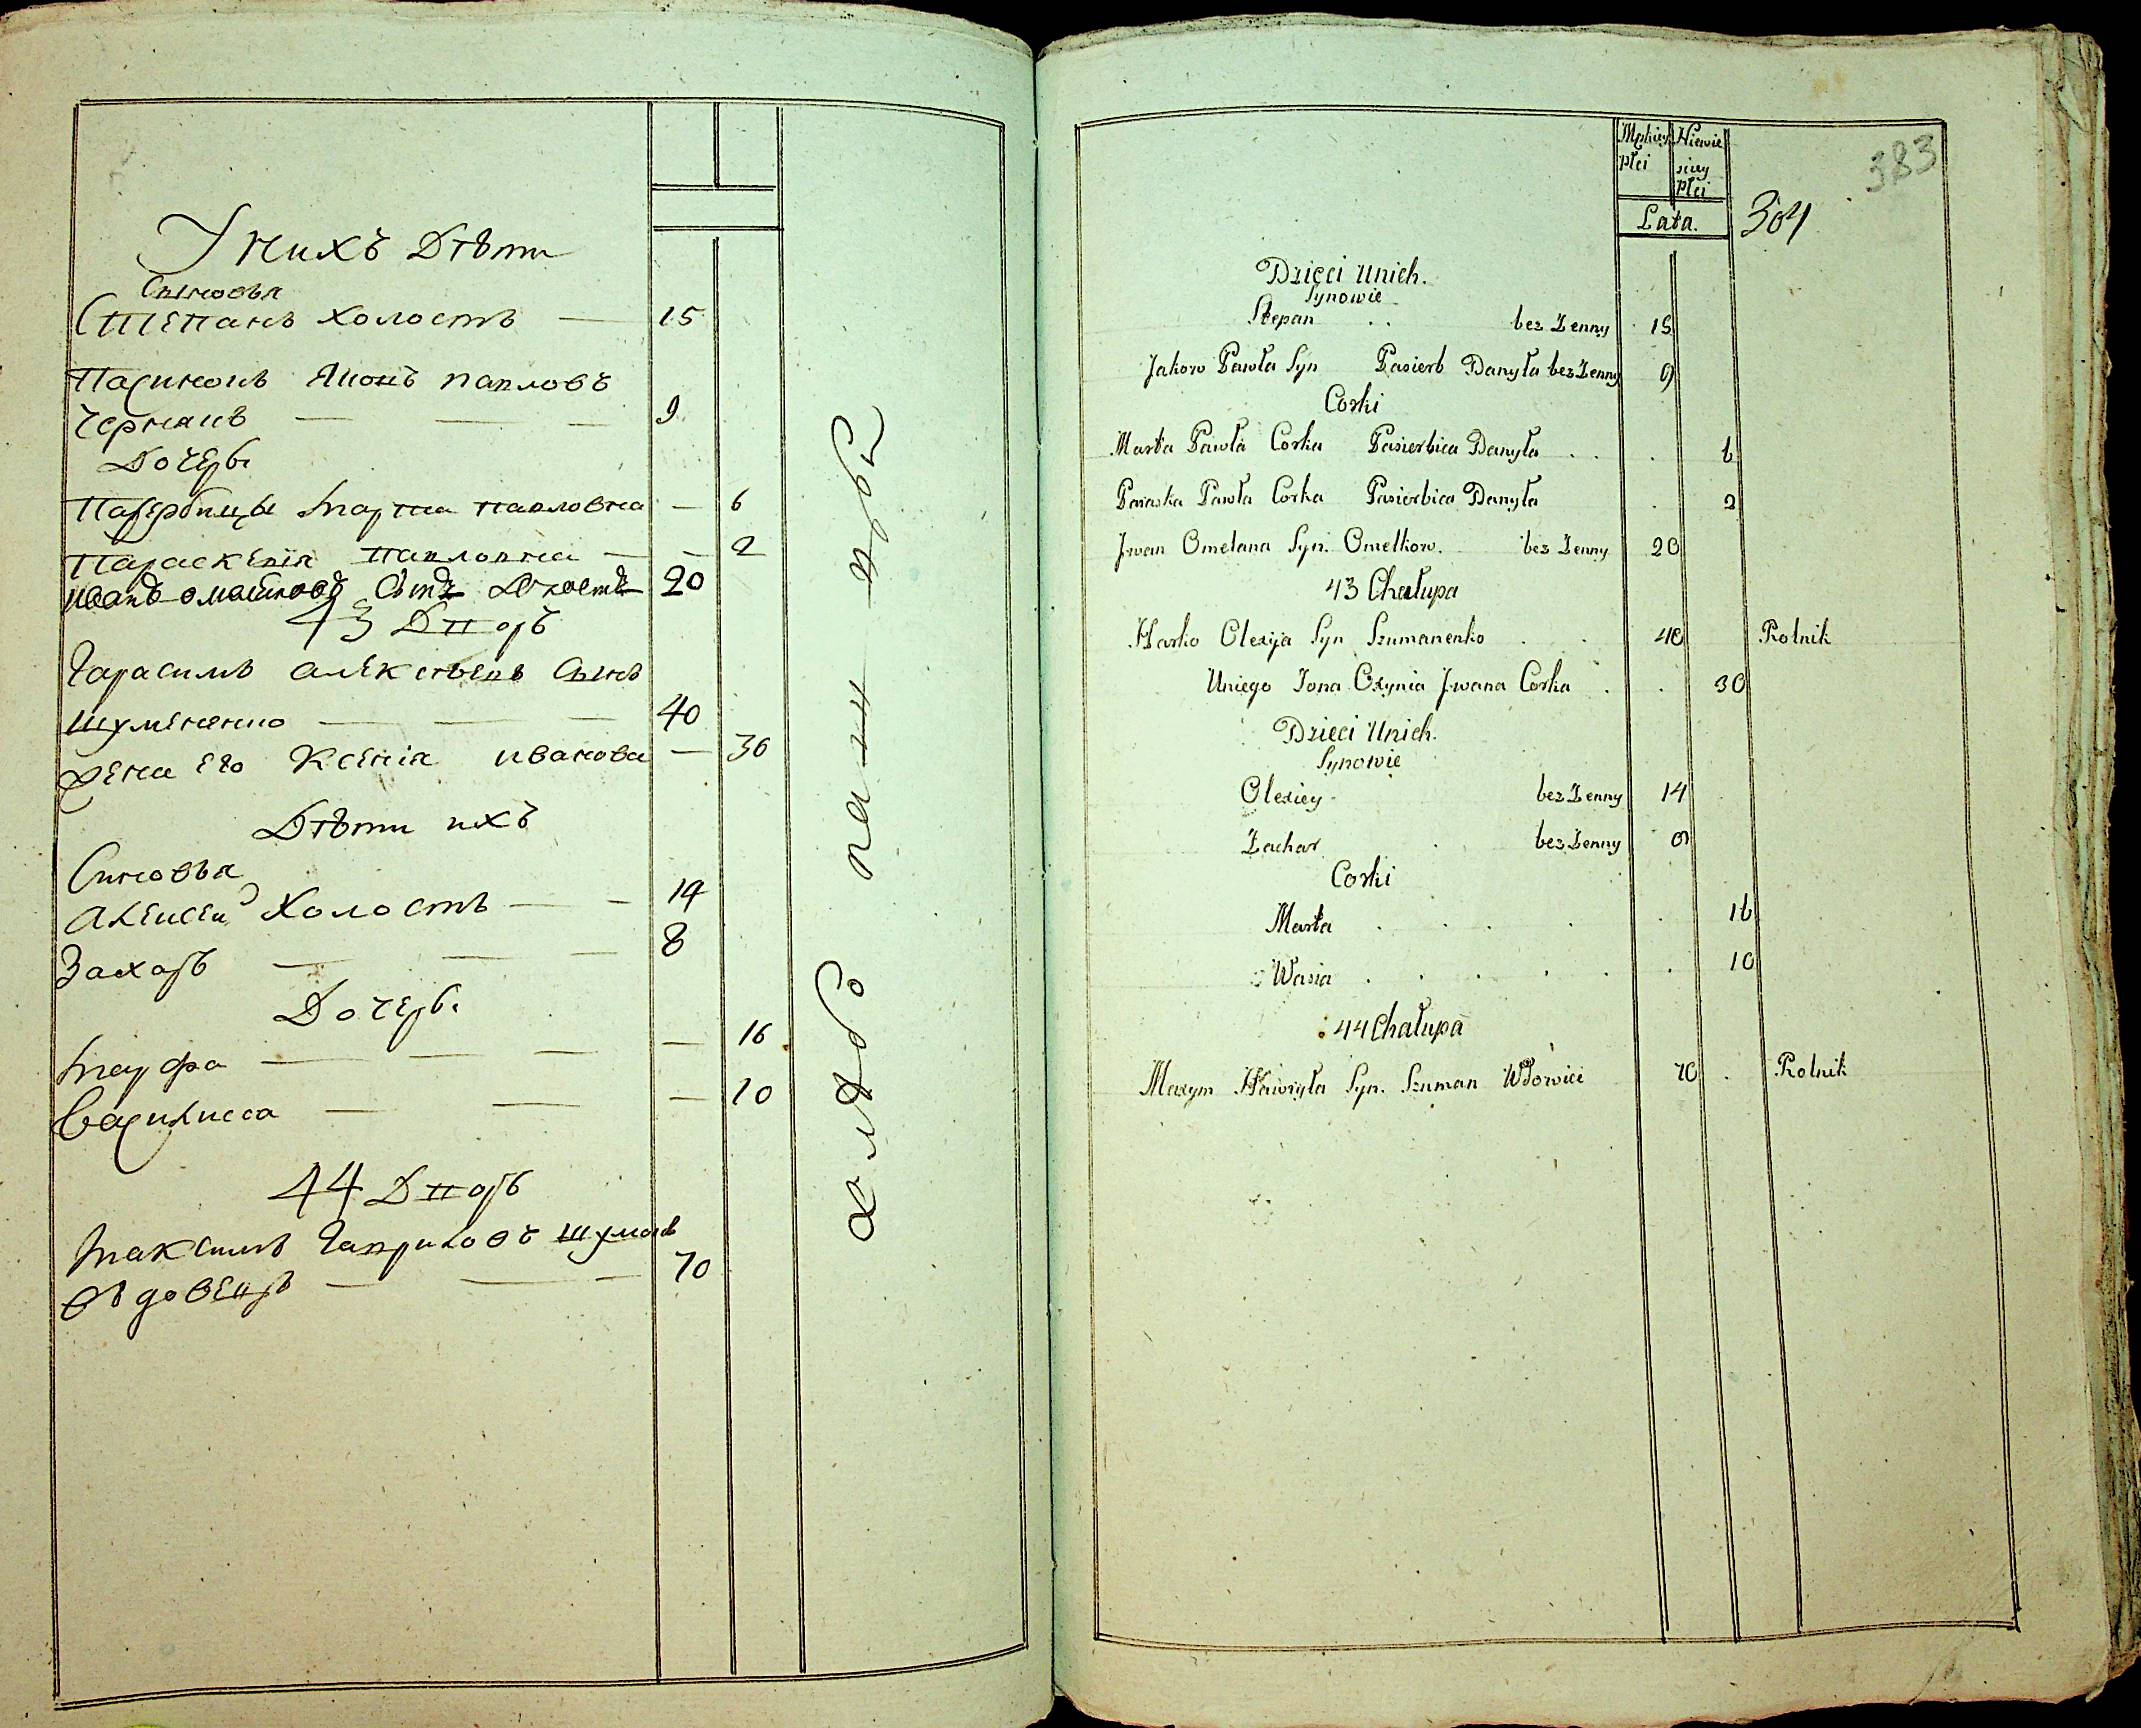 У нихъ Дѣти
Сыновья
Степанъ холостъ — 15
Пасынокъ Яковъ павловъ
Чернякъ — — — 9
Дочерь
Пасербицы Марта павловна — 6
Параскевія павловна — — 2
20
43 Дворъ
Гарасимъ алексѣевъ сынъ
шуманенко — — — 40
жена его Ксенія иванова — 30
Дѣти ихъ
Сыновья
Алексей холостъ — — 14
Захаръ — — — 8
Дочерь
Марфа — — — — 16
Василисса — — — 10
44 Дворъ
Максимъ Гавриловъ шуманъ
вдовецъ — — — 70
383
Męzkiey Płci
Niewie sciey Płci
Lata.
304
Dzięci Unich.
Synowie
Stepan . . bez Zenny 15
Jakow Pawła Syn Pasierb Danyła bez Zenny 9
Corki
Marta Pawła Corka Pasierbica Danyła . . . 6
Paraska Pawła Corka Pasierbica Danyła . 2
Jwan Omelana Syn. Omelkow. bez Zenny 20
43 Chałupa
Harko Olexija Syn Szumanenko . . 40 Rolnik
Uniego Zona Oxynia Jwana Corka . . 30
Dzieci Unich.
Synowie
Olexiey bez Zenny 14
Zachar . bez Zenny 8
Corki
Marta . . . . . 16
Wasia . . . . . . 10
44 Chałupa
Maxym Hawryła Syn. Szuman Wdowiec 70 . Rolnik